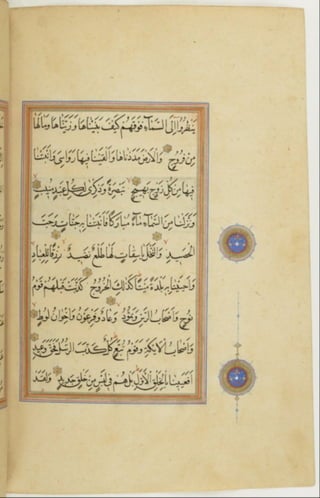 ينظروا إلى السماء فوقهم كيف بنيناها وزيناها وما لها
من فروج والأرض مددناها وألقينا فيها رواسي وأنبتنا
فيها من كل زوج بهيج تبصرة وذكرى لكل عبد منيب
ونزلنا من السماء ماء مباركا فأنبتنا به جنات وحب
الحصيد والنخل باسقات لها طلع نضيد رزقا للعباد
وأحيينا به بلدة ميتا كذلك الخروج كذبت قبلهم قوم
نوح وأصحاب الرس وثمود وعاد وفرعون وإخوان لوط
وأصحاب الأيكة وقوم تبع كل كذب الرسل فحق وعيد
أفعيينا بالخلق الأول بل هم في لبس من خلق جديد ولقد